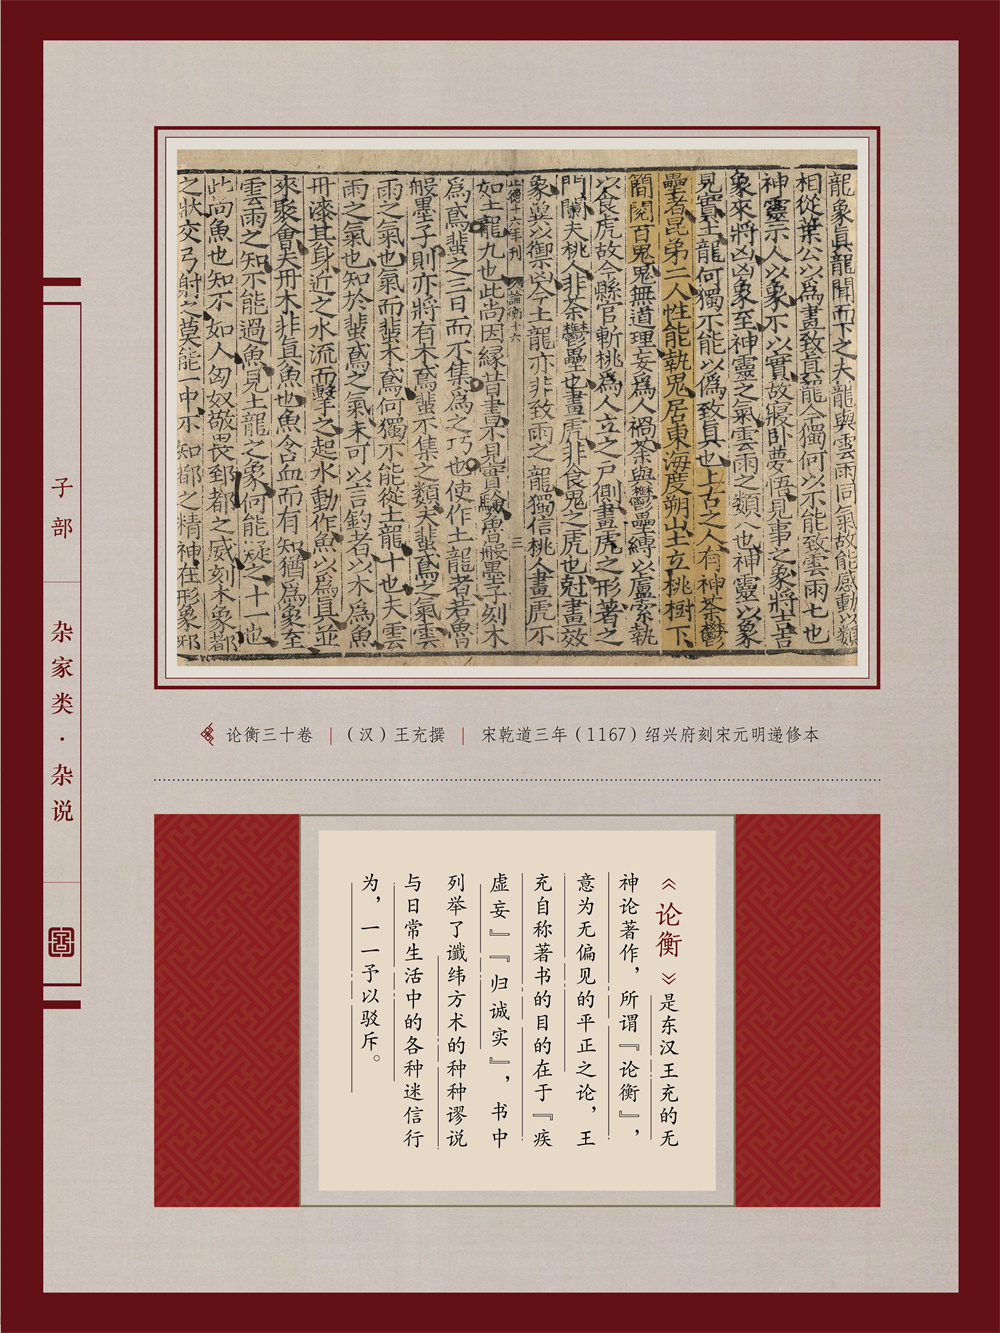 龍象真龍聞而下之夫龍與雲雨同氣故能感動以類
相從葉公以為畫致真龍今獨何以不能致雲雨七也
神靈示人以象不以實故寢卧夢悟見事之象將吉吉
象來將凶凶象至神靈之氣雲雨之類八也神靈以象
見實土龍何獨不能以偽致真也上古之人有神荼鬱
壘者昆弟二人性能執鬼居東海度朔山上立桃樹下
簡閱百鬼鬼無道理妄為人禍荼與鬱壘縛以盧索執
以食虎故今縣官斬桃為人立之戶側畫虎之形著之
門闌夫桃人非荼鬱壘也畫虎非食鬼之虎也刻畫效
象冀以禦凶今土龍亦非致雨之龍獨信桃人畫虎不
正德十六年刊 論衡十六 三
如土龍九也此尚因緣昔書不見實驗魯般墨子刻木
為鳶蜚之三日而不集為之巧也使作土龍者若魯
般墨子則亦將有木鳶蜚不集之類夫蜚鳶之氣雲
雨之氣也氣而蜚木鳶何獨不能從土龍十也夫雲
雨之氣也知於蜚鳶之氣未可以言釣者以木為魚
丹漆其身近之水流而擊之起水動作魚以為真並
來聚會夫丹木非真魚也魚含血而有知猶為象至
雲雨之知不能過魚見土龍之象何能疑之十一也
此尚魚也知不如人匈奴敬畏郅都之威刻木象都
之狀交弓射之莫能一中不知都之精神在形象邪
论衡三十卷 |（汉）王充撰 | 宋乾道三年（1167）绍兴府刻宋元明递修本
子部
杂家类·杂说
《论衡》是东汉王充的无
神论著作，所谓『论衡』，
意为无偏见的平正之论，王
充自称著书的目的在于『疾
虚妄』『归诚实』，书中
列举了谶纬方术的种种谬说
与日常生活中的各种迷信行
为，一一予以驳斥。